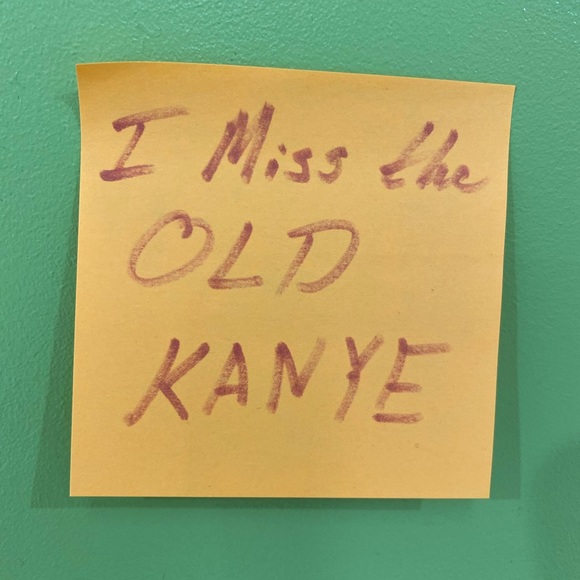 I Miss the
OLD
KANYE